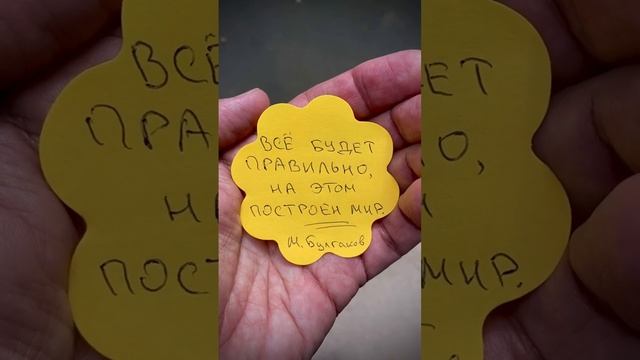 ВСЁ БУДЕТ
ПРАВИЛЬНО,
НА ЭТОМ
ПОСТРОЕН МИР.
М. Булгаков